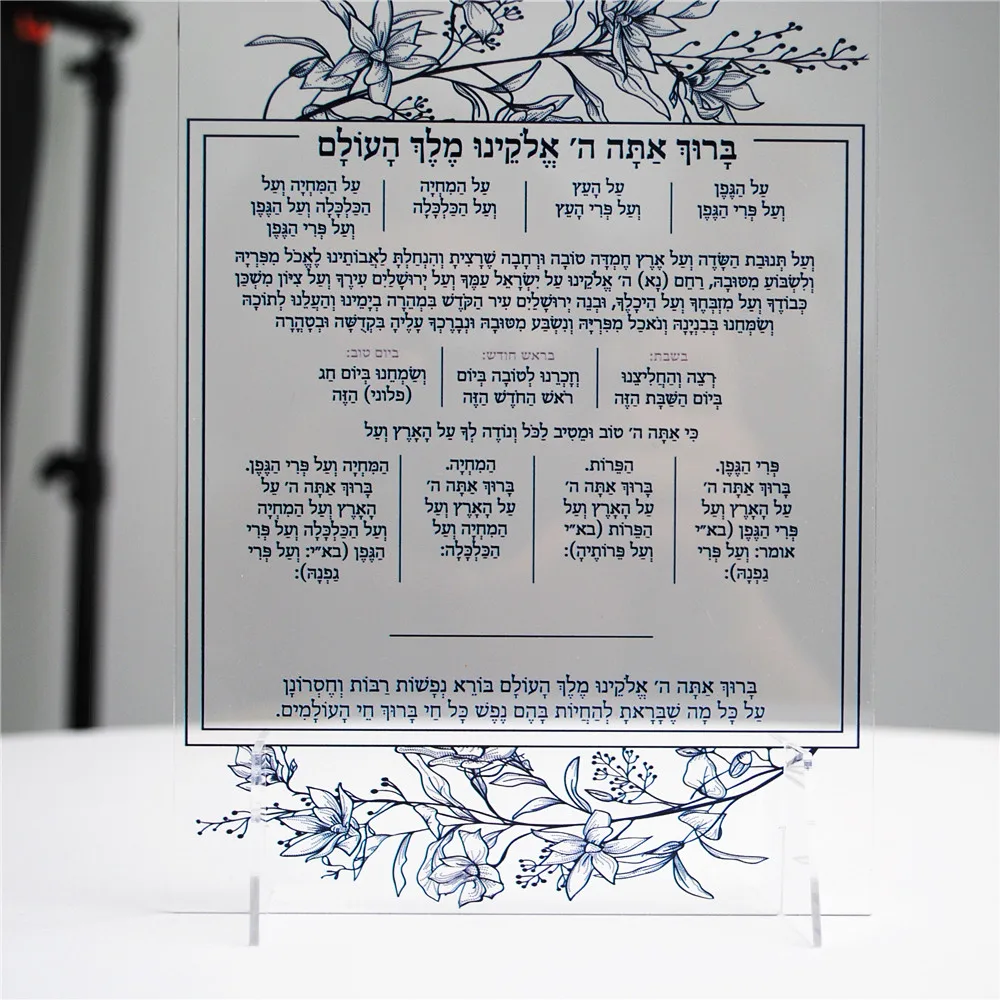 בָּרוּךְ אַתָּה ה׳ אֱלֹקֵינוּ מֶלֶךְ הָעוֹלָם
עַל הַגֶּפֶן
וְעַל פְּרִי הַגֶּפֶן
עַל הָעֵץ
וְעַל פְּרִי הָעֵץ
עַל הַמִּחְיָה
וְעַל הַכַּלְכָּלָה
עַל הַמִּחְיָה וְעַל
הַכַּלְכָּלָה וְעַל הַגֶּפֶן
וְעַל פְּרִי הַגֶּפֶן
וְעַל תְּנוּבַת הַשָּׂדֶה וְעַל אֶרֶץ חֶמְדָּה טוֹבָה וּרְחָבָה שֶׁרָצִיתָ וְהִנְחַלְתָּ לַאֲבוֹתֵינוּ לֶאֱכֹל מִפִּרְיָהּ
וְלִשְׂבּוֹעַ מִטּוּבָהּ, רַחֵם (נָא) ה׳ אֱלֹקֵינוּ עַל יִשְׂרָאֵל עַמֶּךָ וְעַל יְרוּשָׁלַיִם עִירֶךָ וְעַל צִיּוֹן מִשְׁכַּן
כְּבוֹדֶךָ וְעַל מִזְבְּחֶךָ וְעַל הֵיכָלֶךָ, וּבְנֵה יְרוּשָׁלַיִם עִיר הַקֹּדֶשׁ בִּמְהֵרָה בְיָמֵינוּ וְהַעֲלֵנוּ לְתוֹכָהּ
וְשַׂמְּחֵנוּ בְּבִנְיָנָהּ וְנֹאכַל מִפִּרְיָהּ וְנִשְׂבַּע מִטּוּבָהּ וּנְבָרֶכְךָ עָלֶיהָ בִּקְדֻשָּׁה וּבְטָהֳרָה
בשבת:
רְצֵה וְהַחֲלִיצֵנוּ
בְּיוֹם הַשַּׁבָּת הַזֶּה
בראש חודש:
וְזָכְרֵנוּ לְטוֹבָה בְּיוֹם
רֹאשׁ הַחֹדֶשׁ הַזֶּה
ביום טוב:
וְשַׂמְּחֵנוּ בְּיוֹם חַג
(פלוני) הַזֶּה
כִּי אַתָּה ה׳ טוֹב וּמֵטִיב לַכֹּל וְנוֹדֶה לְךָ עַל הָאָרֶץ וְעַל
פְּרִי הַגֶּפֶן.
בָּרוּךְ אַתָּה ה׳
עַל הָאָרֶץ וְעַל
פְּרִי הַגֶּפֶן (בא״י
אומר: וְעַל פְּרִי
גַפְנָהּ):
הַפֵּרוֹת.
בָּרוּךְ אַתָּה ה׳
עַל הָאָרֶץ וְעַל
הַפֵּרוֹת (בא״י
וְעַל פֵּרוֹתֶיהָ):
הַמִּחְיָה.
בָּרוּךְ אַתָּה ה׳
עַל הָאָרֶץ וְעַל
הַמִּחְיָה וְעַל
הַכַּלְכָּלָה:
הַמִּחְיָה וְעַל פְּרִי הַגֶּפֶן.
בָּרוּךְ אַתָּה ה׳ עַל
הָאָרֶץ וְעַל הַמִּחְיָה
וְעַל הַכַּלְכָּלָה וְעַל פְּרִי
הַגֶּפֶן (בא״י: וְעַל פְּרִי
גַפְנָהּ):
בָּרוּךְ אַתָּה ה׳ אֱלֹקֵינוּ מֶלֶךְ הָעוֹלָם בּוֹרֵא נְפָשׁוֹת רַבּוֹת וְחֶסְרוֹנָן
עַל כָּל מַה שֶּׁבָּרָאתָ לְהַחֲיוֹת בָּהֶם נֶפֶשׁ כָּל חַי בָּרוּךְ חֵי הָעוֹלָמִים.